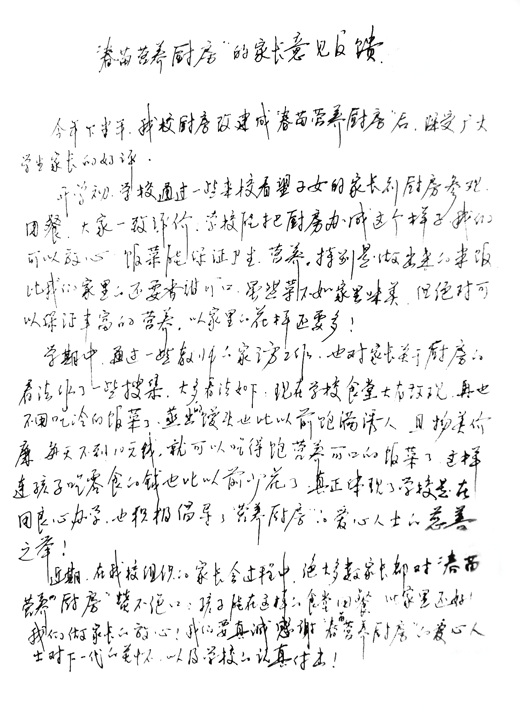 "春苗营养厨房"的家长意见反馈
今年下半年,我校厨房改建成"春苗营养厨房"后,深受广大
学生家长的好评。
开学初,学校通过一些来校看望子女的家长到厨房参观、
用餐,大家一致评价,学校能把厨房办成这个样子,我们
可以放心,饭菜能保证卫生、营养。特别是做出来的米饭
比我们家里的还要香甜可口,虽然菜不如家里味美,但绝对可
以保证丰富的营养,比家里的花样还要多!
学期中,通过一些教师的家访工作,也对家长关于厨房的
看法作了一些搜集,大多看法如下:现在学校食堂大有改观,再也
不用吃冷的饭菜了,蒸出的馒头也比以前饱满诱人,且物美价
廉,每天不到10元钱,就可以吃得饱营养可口的饭菜了,这样
连孩子吃零食的钱也比以前少花了,真正体现了学校是在
用良心办学,也积极倡导了"营养厨房"的爱心人士的慈善
之举!
近期,在我校组织的家长会过程中,绝大多数家长都对"春苗
营养厨房"赞不绝口:孩子能在这样的食堂用餐,比家里还好!
我们做家长的放心!我们要真诚感谢"春苗营养厨房"的爱心人
士对下一代的关怀,以及学校的认真付出!